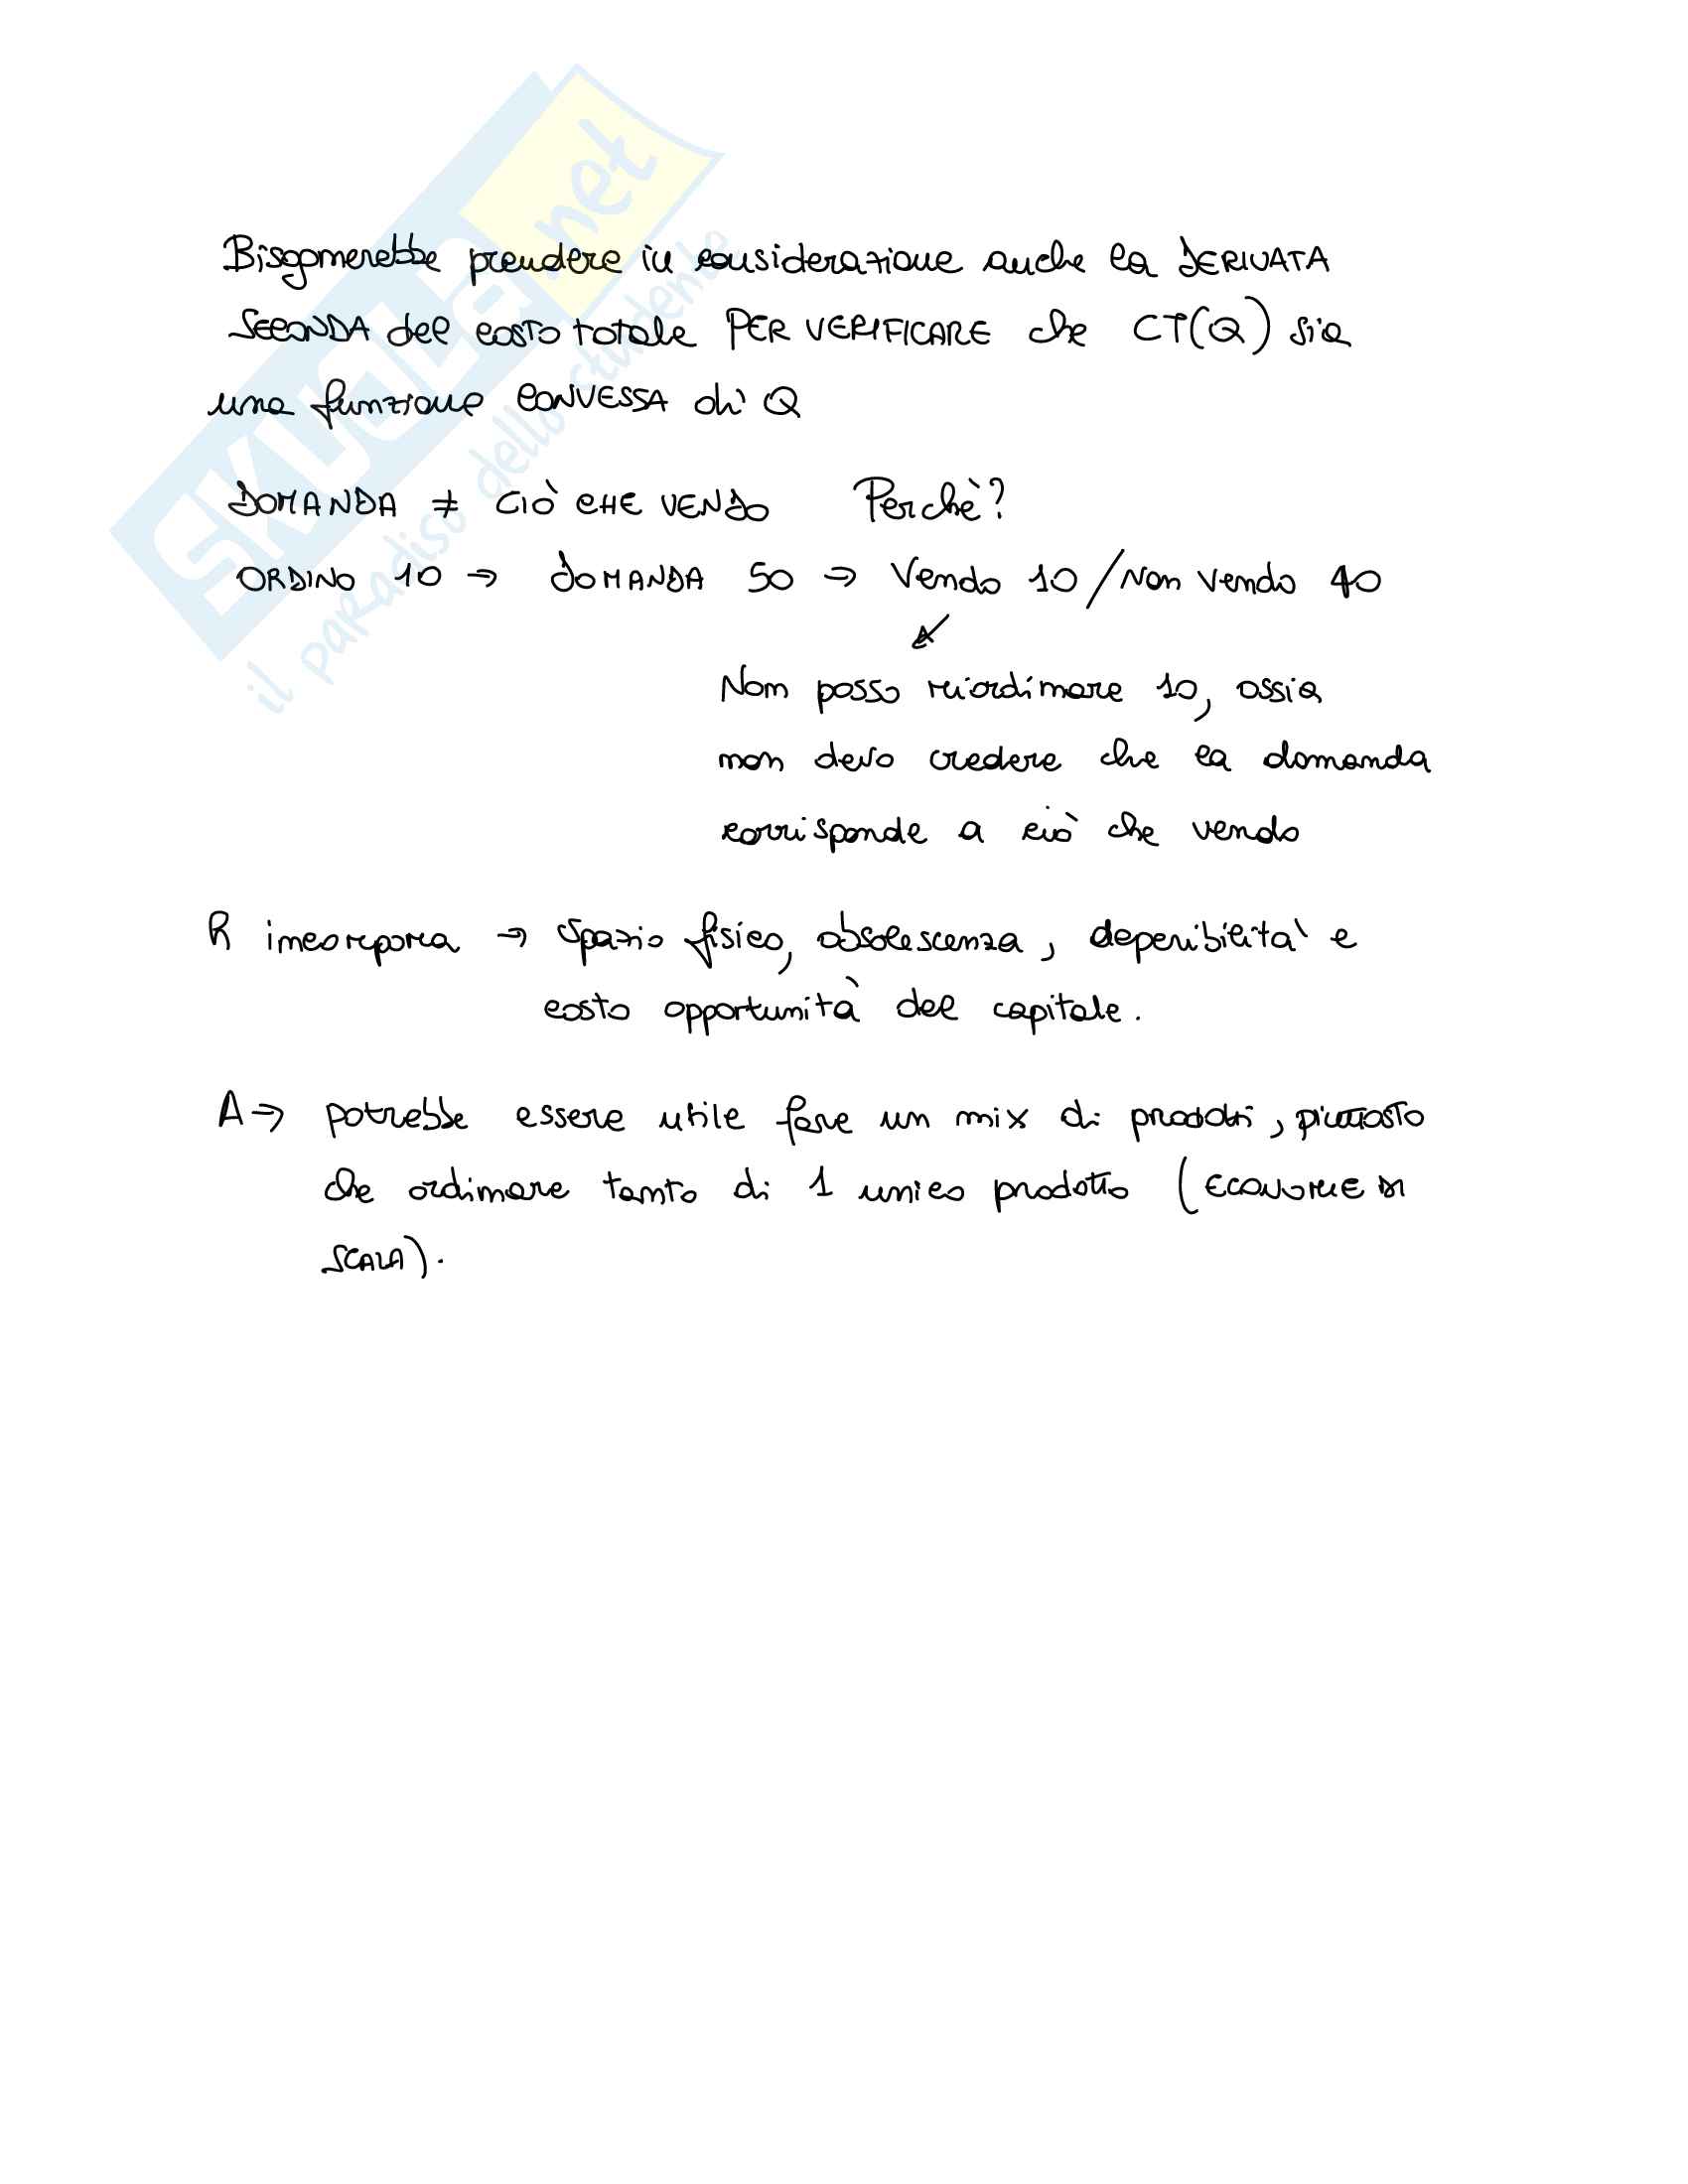 SKUOLA.net
il paradiso dello studente
Bisognerebbe prendere in considerazione anche la DERIVATA
SECONDA del costo totale PER VERIFICARE che CT(Q) sia
una funzione CONVESSA di Q
DOMANDA ≠ CIÒ CHE VENDO Perchè?
ORDINO 10 → DOMANDA 50 → Vendo 10/Non vendo 40
Non posso riordinare 10, ossia
non devo credere che la domanda
corrisponde a ciò che vendo
R incorpora → Spazio fisico, obsolescenza, deperibilità e
costo opportunità del capitale.
A → potrebbe essere utile fare un mix di prodotti, piuttosto
che ordinare tanto di 1 unico prodotto (ECONOMIE DI
SCALA).